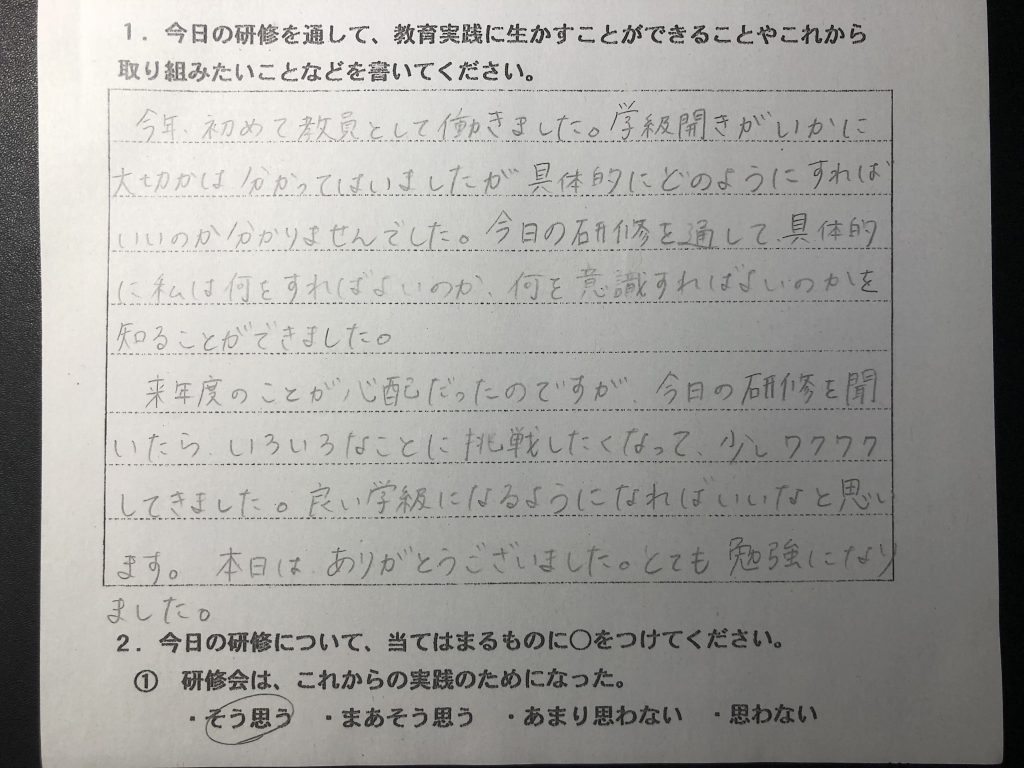 1．今日の研修を通して、教育実践に生かすことができることやこれから
取り組みたいことなどを書いてください。
今年、初めて教員として働きました。学級開きがいかに
大切かは分かってはいましたが具体的にどのようにすれば
いいのか分かりませんでした。今日の研修を通して、具体的
に私は何をすればよいのか、何を意識すればよいのかを
知ることができました。
来年度のことが心配だったのですが、今日の研修を聞
いたら、いろいろなことに挑戦したくなって、少しワクワク
してきました。良い学級になるようになればいいなと思い
ます。本日は、ありがとうございました。とても勉強になり
ました。
2．今日の研修について、当てはまるものに○をつけてください。
① 研修会は、これからの実践のためになった。
・そう思う ・まあそう思う ・あまり思わない ・思わない